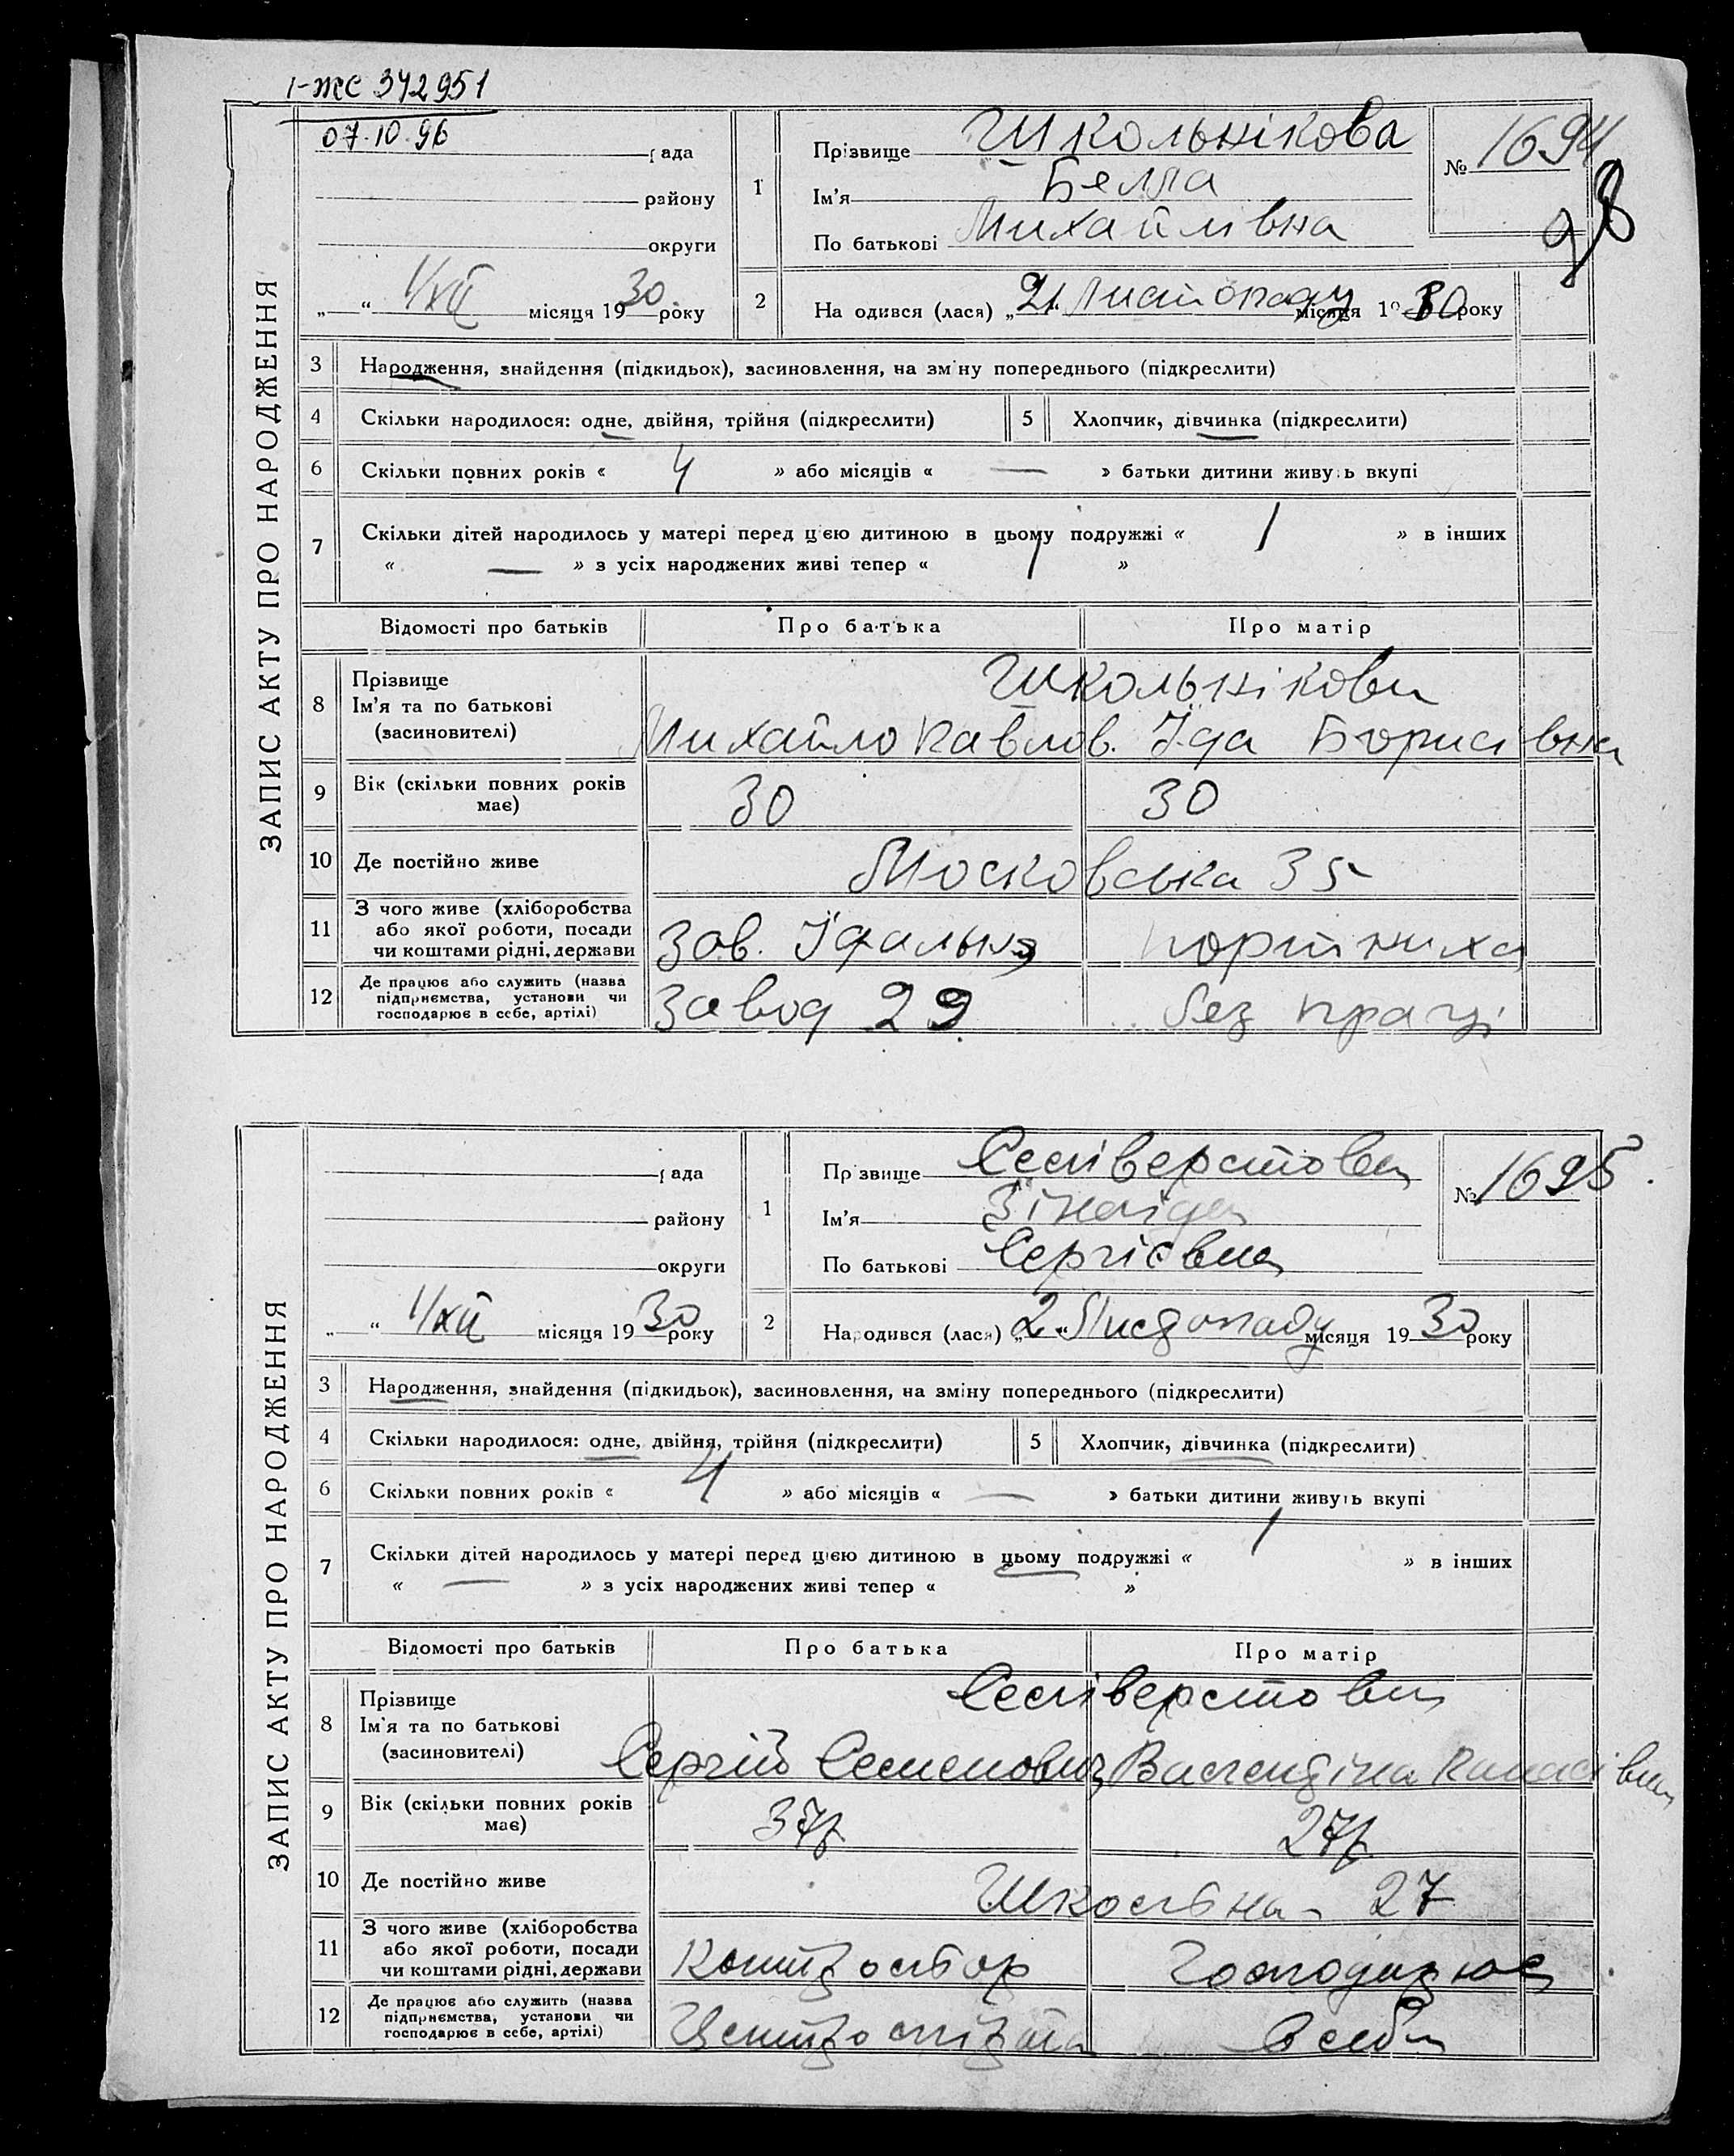 І-ЖС 342951
07.10.96
ада
району
округи
„ “ 1/XII місяця 1930 року
ЗАПИС АКТУ ПРО НАРОДЖЕННЯ
1
Прізвище Школьнікова
Ім’я Белла
По батькові Михайлівна
№ 1694
98
2 На одився (лася) „21“ Листопаду місяця 1930 року
3 Народження, знайдення (підкидьок), засиновлення, на зм ну попереднього (підкреслити)
4 Скільки народилося: одне, двійня, трійня (підкреслити) 5 Хлопчик, дівчинка (підкреслити)
6 Скільки повних років « 4 » або місяців « — » батьки дитини живу ь вкупі
7 Скільки дітей народилось у матері перед цією дитиною в цьому подружжі « 1 » в інших
« — » з усіх народжених живі тепер « 1 »
Відомості про батьків Про батька Про матір
8 Прізвище
Ім’я та по батькові
(засиновителі)
Школьнікови
Михайло Павлов. Їда Борисівна
9 Вік (скільки повних років має) 30 30
10 Де постійно живе Московська 35
11 З чого живе (хліборобства
або якої роботи, посади
чи коштами рідні, держави
Зав. Їдальня портниха
12 Де працює або служить (назва
підприємства, установи чи
господарює в себе, артілі)
Завод 29 без праці
ада
району
округи
„ “ 1/XII місяця 1930 року
ЗАПИС АКТУ ПРО НАРОДЖЕННЯ
1
Пр звище Селіверстова
Ім’я Зінаіда
По батькові Сергієвна
№ 1695.
2 Народився (лася) „2“ Листопаду місяця 1930 року
3 Народження, знайдення (підкидьок), засиновлення, на зміну попереднього (підкреслити)
4 Скільки народилося: одне, двійня, трійня (підкреслити) 5 Хлопчик, дівчинка (підкреслити)
6 Скільки повних років « 4 » або місяців « — » батьки дитини живуть вкупі
7 Скільки дітей народилось у матері перед цією дитиною в цьому подружжі « 1 » в інших
« — » з усіх народжених живі тепер « »
Відомості про батьків Про батька Про матір
8 Прізвище
Ім’я та по батькові
(засиновителі)
Селіверстови
Сергій Семенович Валентіна
9 Вік (скільки повних років має) 37р 27р
10 Де постійно живе Шкільна 27
11 З чого живе (хліборобства
або якої роботи, посади
чи коштами рідні, держави
Контрольор Господарює
12 Де працює або служить (назва
підприємства, установи чи
господарює в себе, артілі)
в себе